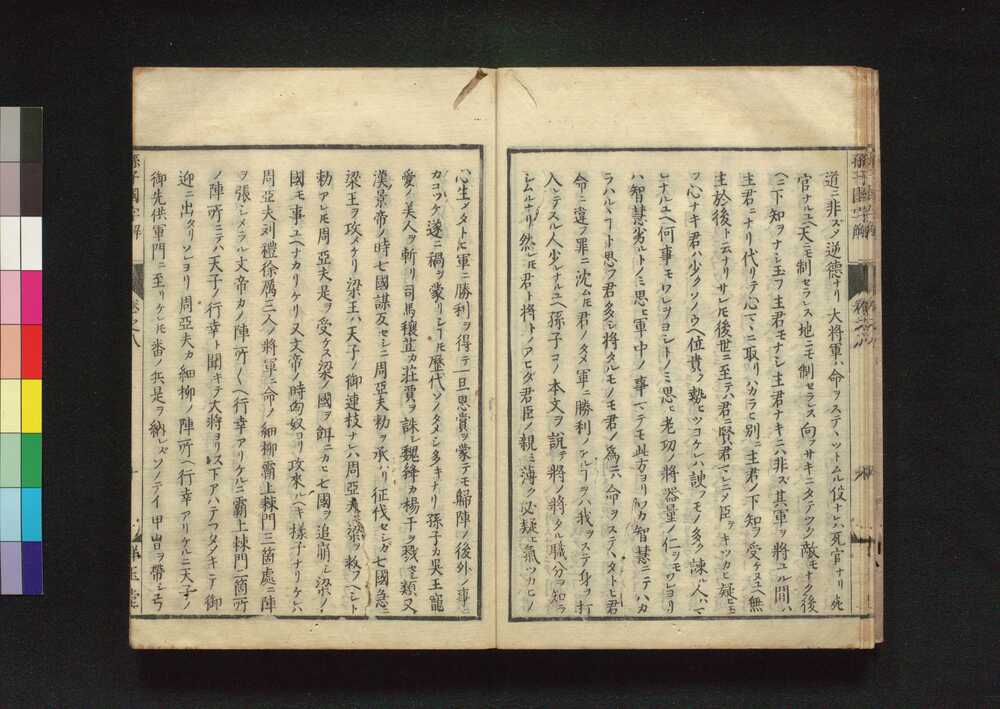 道ニ非ズ又逆徳ナリ大將軍ハ命ヲステヽツトムル役ナレハ死官ナリ死
官ナルユヘ天ニモ制セラレス地ニモ制セラレス向フサキニタテツク敵モナク後
ヘニ下知ヲナシ玉フ主君モナシ主君ナキニハ非ス其軍ヲ將ユル間ハ
主君ニナリ代リテ心マヽニ取リハカラヒ別ニ主君ノ下知ヲ受ケヌユヘ無
主於後ト云ナリサレ𪜈後世ニ至テハ君ニ賢君マレニシメ臣ヲキツカヒ疑ヒ玉
ヲ心ナキ君ハ少クソノウヘ位貴ク勢ヒツヨケレハ諛フモノ多ク諫ル人ハマ
レナルユヘ何事モワレヲヨシトノミ思ヒ老功ノ將器量ノ仁ヲモワレヨリ
ハ智慧劣ルトノミ思ヒ軍中ノ事マテモ此方ヨリワカ智慧ニテハカ
ラハルヘシト思フ君多シ將タルモノモ君ノ爲ニハ命ヲステヘタトヒ君
命ニ違フ罪ニ沈ム𪜈君ノタメ軍ニ勝利ノアルヤウヲハ我身ヲステヽ打
入レテスル人少レナルユヘ孫子コノ本文ヲ說テ將ノ將タル職分ヲ知ラ
シムルナリ然レ𪜈君ト將トノアヒダ君臣ノ親ミ薄ク必疑ヒ氣ツカヒノ
心生シタトヒ軍ニ勝利ヲ得テ一旦恩賞ヲ蒙テモ歸陣ノ後外ノ事ニ
カコツケ遂ニ禍ヲ蒙リシ𪜈歷代ソノタメシ多キナリ孫子カ吳王寵
愛ノ美人ヲ斬リ司馬穰苴カ莊賈ヲ誅シ魏絳カ楊干ヲ戮セシ類又
漢景帝ノ時七國謀反セシニ周亞夫勅ヲ承リ征伐セシガ七國急ニ
梁王ヲ攻メケリ梁王ハ天子ノ御連枝ナレハ周亞夫梁ヲ救フヘシト
勅アレ𪜈周亞夫是ヲ受ケス梁ノ國ヲ餌ニカヒ七國ヲ追崩シ梁ノ
國モ事ユヘナカリケリ又文帝ノ時匈奴ヨリ攻來ルヘキ樣子ナリケレハ
周亞夫劉禮徐厲三人ノ將軍ニ命シ細柳霸上棘門三箇處ニ陣
ヲ張シメラル文帝カノ陣所〱ヘ行幸アリケルニ霸上棘門二箇所
ノ陣所ニテハ天子ノ行幸ト聞キテ大將ヨリ以下アハテフタメキテ御
迎ニ出タリソレヨリ周亞夫カ細柳ノ陣所ヘ行幸アリケルニ天子ノ
御先供軍門ニ至リケレ𪜈番ノ兵是ヲ納レズソノテイ甲冑ヲ帶シ弓
孫子國字解
卷之八